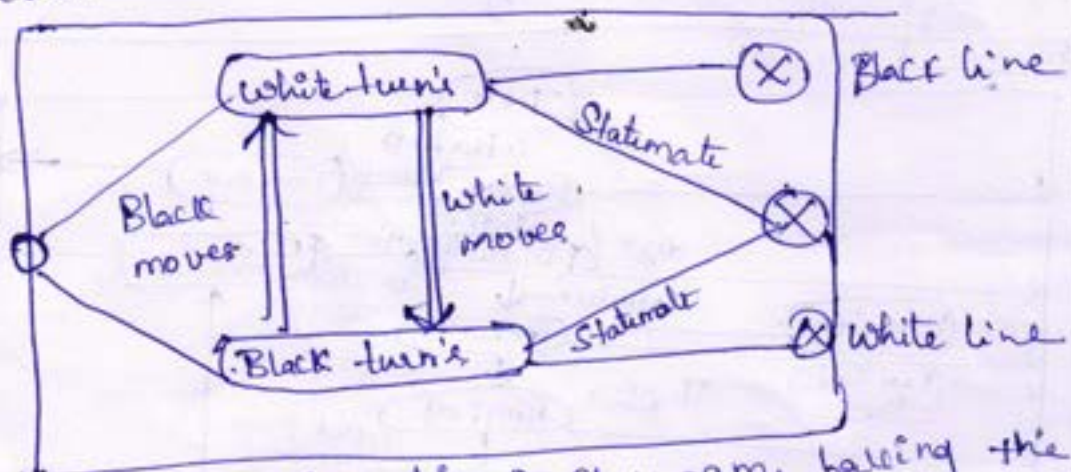 White turn's
Black line
Stalimate
Black
moves
White
moves
Stalimate
Black turn's
White line
having the